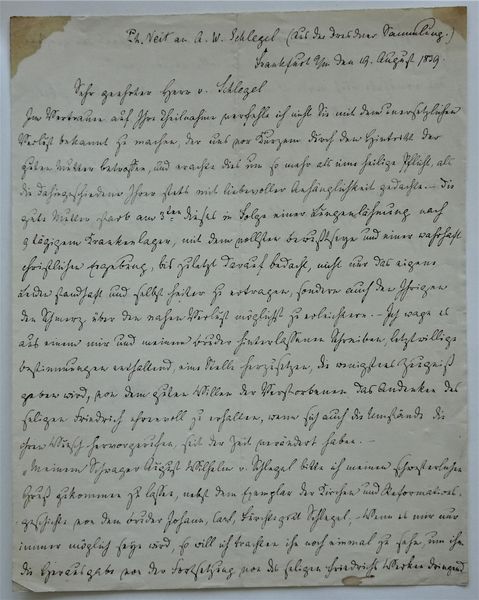 Ph. Veit an A. W. Schlegel (Aus der Dresdner Sammlung.)
Frankfurt a/m den 19. August 1839.
Sehr geehrter Herr v. Schlegel
Im Vertrauen auf Ihre Theilnahme verfehle ich nicht Sie mit dem unersetzlichen
Verlust bekannt zu machen, der uns vor Kurzem durch den Hintritt der
guten Mutter betroffen, und erachte dies um so mehr als eine heilige Pflicht, als
die Dahingeschiedene Ihrer stets mit liebevoller Anhänglichkeit gedachte. – Die
gute Mutter starb am 3ten dieses in Folge einer Lungenlähmung nach
9 tägigem Krankenlager, mit dem vollsten Bewußtseyn und einer wahrhaft
christlichen Ergebung, bis zuletzt darauf bedacht, nicht nur das eigene
Leiden standhaft und selbst heiter zu ertragen, sondern auch den Ihrigen
den Schmerz über den nahen Verlust möglichst zu erleichtern. – Ich wage es
aus einem mir und meinem Bruder hinterlassenen Schreiben, letztwillige
Bestimmungen enthaltend, eine Stelle herzusetzen, die wenigstens Zeugniß
geben wird, von dem guten Willen der Verstorbenen das Andenken des
seligen Friedrich ehrenvoll zu erhalten, wenn sich auch die Umstände die
ihren Wunsch hervorgerufen, seit der Zeit verändert haben. –
"Meinem Schwager August Wilhelm v. Schlegel bitte ich meinen schwesterlichen
Gruß zukommen zu lassen, nebst dem Exemplar der Kirchen und Reformations-
geschichte von dem Bruder Johann, Carl, Fürchtegott Schlegel. – Wenn es mir nur
immer möglich seyn wird, so will ich trachten ihn noch einmal zu sehn, um ihm
die Herausgabe von der Fortsetzung von des seligen Friedrichs Werken dringend